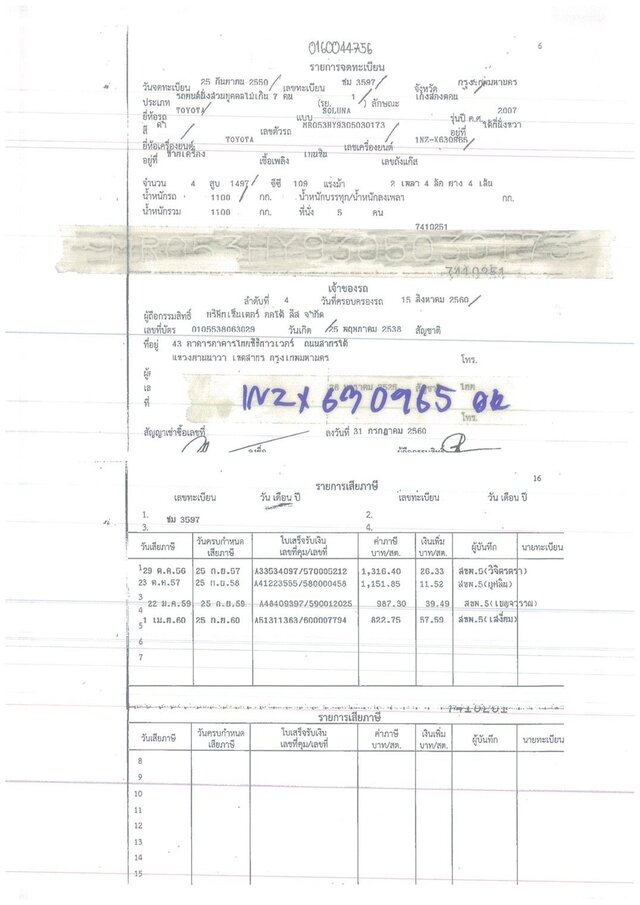 0160044756
6
รายการจดทะเบียน
วันจดทะเบียน 25 กันยายน 2550 เลขทะเบียน ชม 3597 จังหวัด กรุงเทพมหานคร
ประเภท รถยนต์นั่งส่วนบุคคลไม่เกิน 7 คน (รย. 1 ) ลักษณะ เก๋งสองตอน
ยี่ห้อรถ TOYOTA แบบ SOLUNA รุ่นปี ค.ศ. 2007
สี ดำ เลขตัวรถ MR053HY9305030173 อยู่ที่ ใต้ที่นั่งขวา
ยี่ห้อเครื่องยนต์ TOYOTA เลขเครื่องยนต์ 1NZ-X630965
อยู่ที่ ข้างเครื่อง เชื้อเพลิง เบนซิน เลขถังแก๊ส
จำนวน 4 สูบ 1497 ซีซี 109 แรงม้า 2 เพลา 4 ล้อ ยาง 4 เส้น
น้ำหนักรถ 1100 กก. น้ำหนักบรรทุก/น้ำหนักลงเพลา กก.
น้ำหนักรวม 1100 กก. ที่นั่ง 5 คน
7410251
MR053HY9305030173
7410251
เจ้าของรถ
ลำดับที่ 4 วันที่ครอบครองรถ 15 สิงหาคม 2560
ผู้ถือกรรมสิทธิ์ บริษัท
เลขที่บัตร 0105538063029 วันเกิด 25 พฤษภาคม 2538 สัญชาติ
ที่อยู่ 43 อาคาร ถนนสาทรใต้
แขวงยานนาวา เขตสาทร กรุงเทพมหานคร โทร.
ที่ 1NZX 630965 โทร.
สัญญาเช่าซื้อเลขที่ ลงวันที่ 31 กรกฎาคม 2560
16
รายการเสียภาษี
เลขทะเบียน วัน เดือน ปี เลขทะเบียน วัน เดือน ปี
1. ชม 3597 2.
3. 4.
วันเสียภาษี วันครบกำหนดเสียภาษี ใบเสร็จรับเงินเลขที่คุม/เลขที่ ค่าภาษี บาท/สต. เงินเพิ่ม บาท/สต. ผู้บันทึก นายทะเบียน
1 29 ต.ค.56 25 ก.ย.57 A33534097/570005212 1,316.40 26.33 สขพ.5(วิจิตรตรา)
23 ต.ค.57 25 ก.ย.58 A41223555/580000458 1,151.85 11.52
3
22 ม.ค.59 25 ก.ย.59 A48409397/590012025 987.30 39.49 สขพ.5(เบญจวรรณ)
4
5 1 เม.ย.60 25 ก.ย.60 A51311363/600007794 822.75 57.59 สขพ.5(เสงี่ยม)
6
7
7410251
รายการเสียภาษี
วันเสียภาษี วันครบกำหนดเสียภาษี ใบเสร็จรับเงินเลขที่คุม/เลขที่ ค่าภาษี บาท/สต. เงินเพิ่ม บาท/สต. ผู้บันทึก นายทะเบียน
8
9
10
11
12
13
14
15